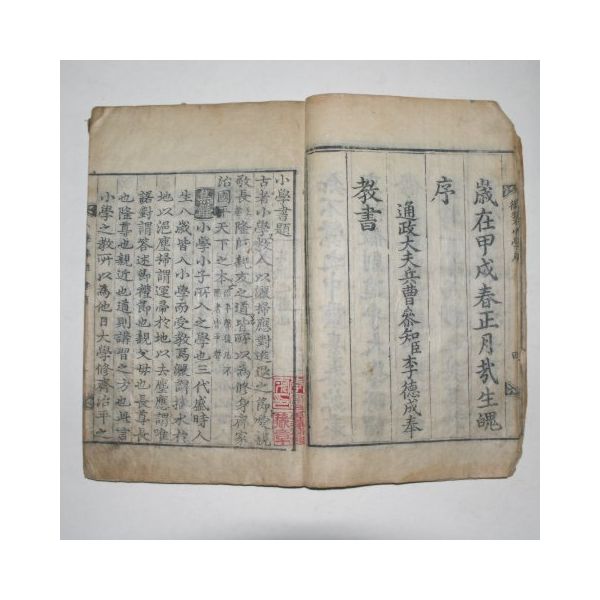 歲在甲戌春正月哉生魄
序
通政大夫兵曹參知臣李德成奉
教書
小學書題
古者小學敎人以灑掃應對進退之節愛親
敬長隆師親友之道皆所以爲修身齊家
治國平天下之本
小學小子所入之學也三代盛時人
生八歲皆入小學而受敎焉灑謂播水於
地以浥塵掃謂運帚於地以去塵應謂唯
諾對謂答述節禮節也親父母也長尊長
也隆尊也親近也道則講習之方也此言
小學之敎所以爲他日大學修齊治平之